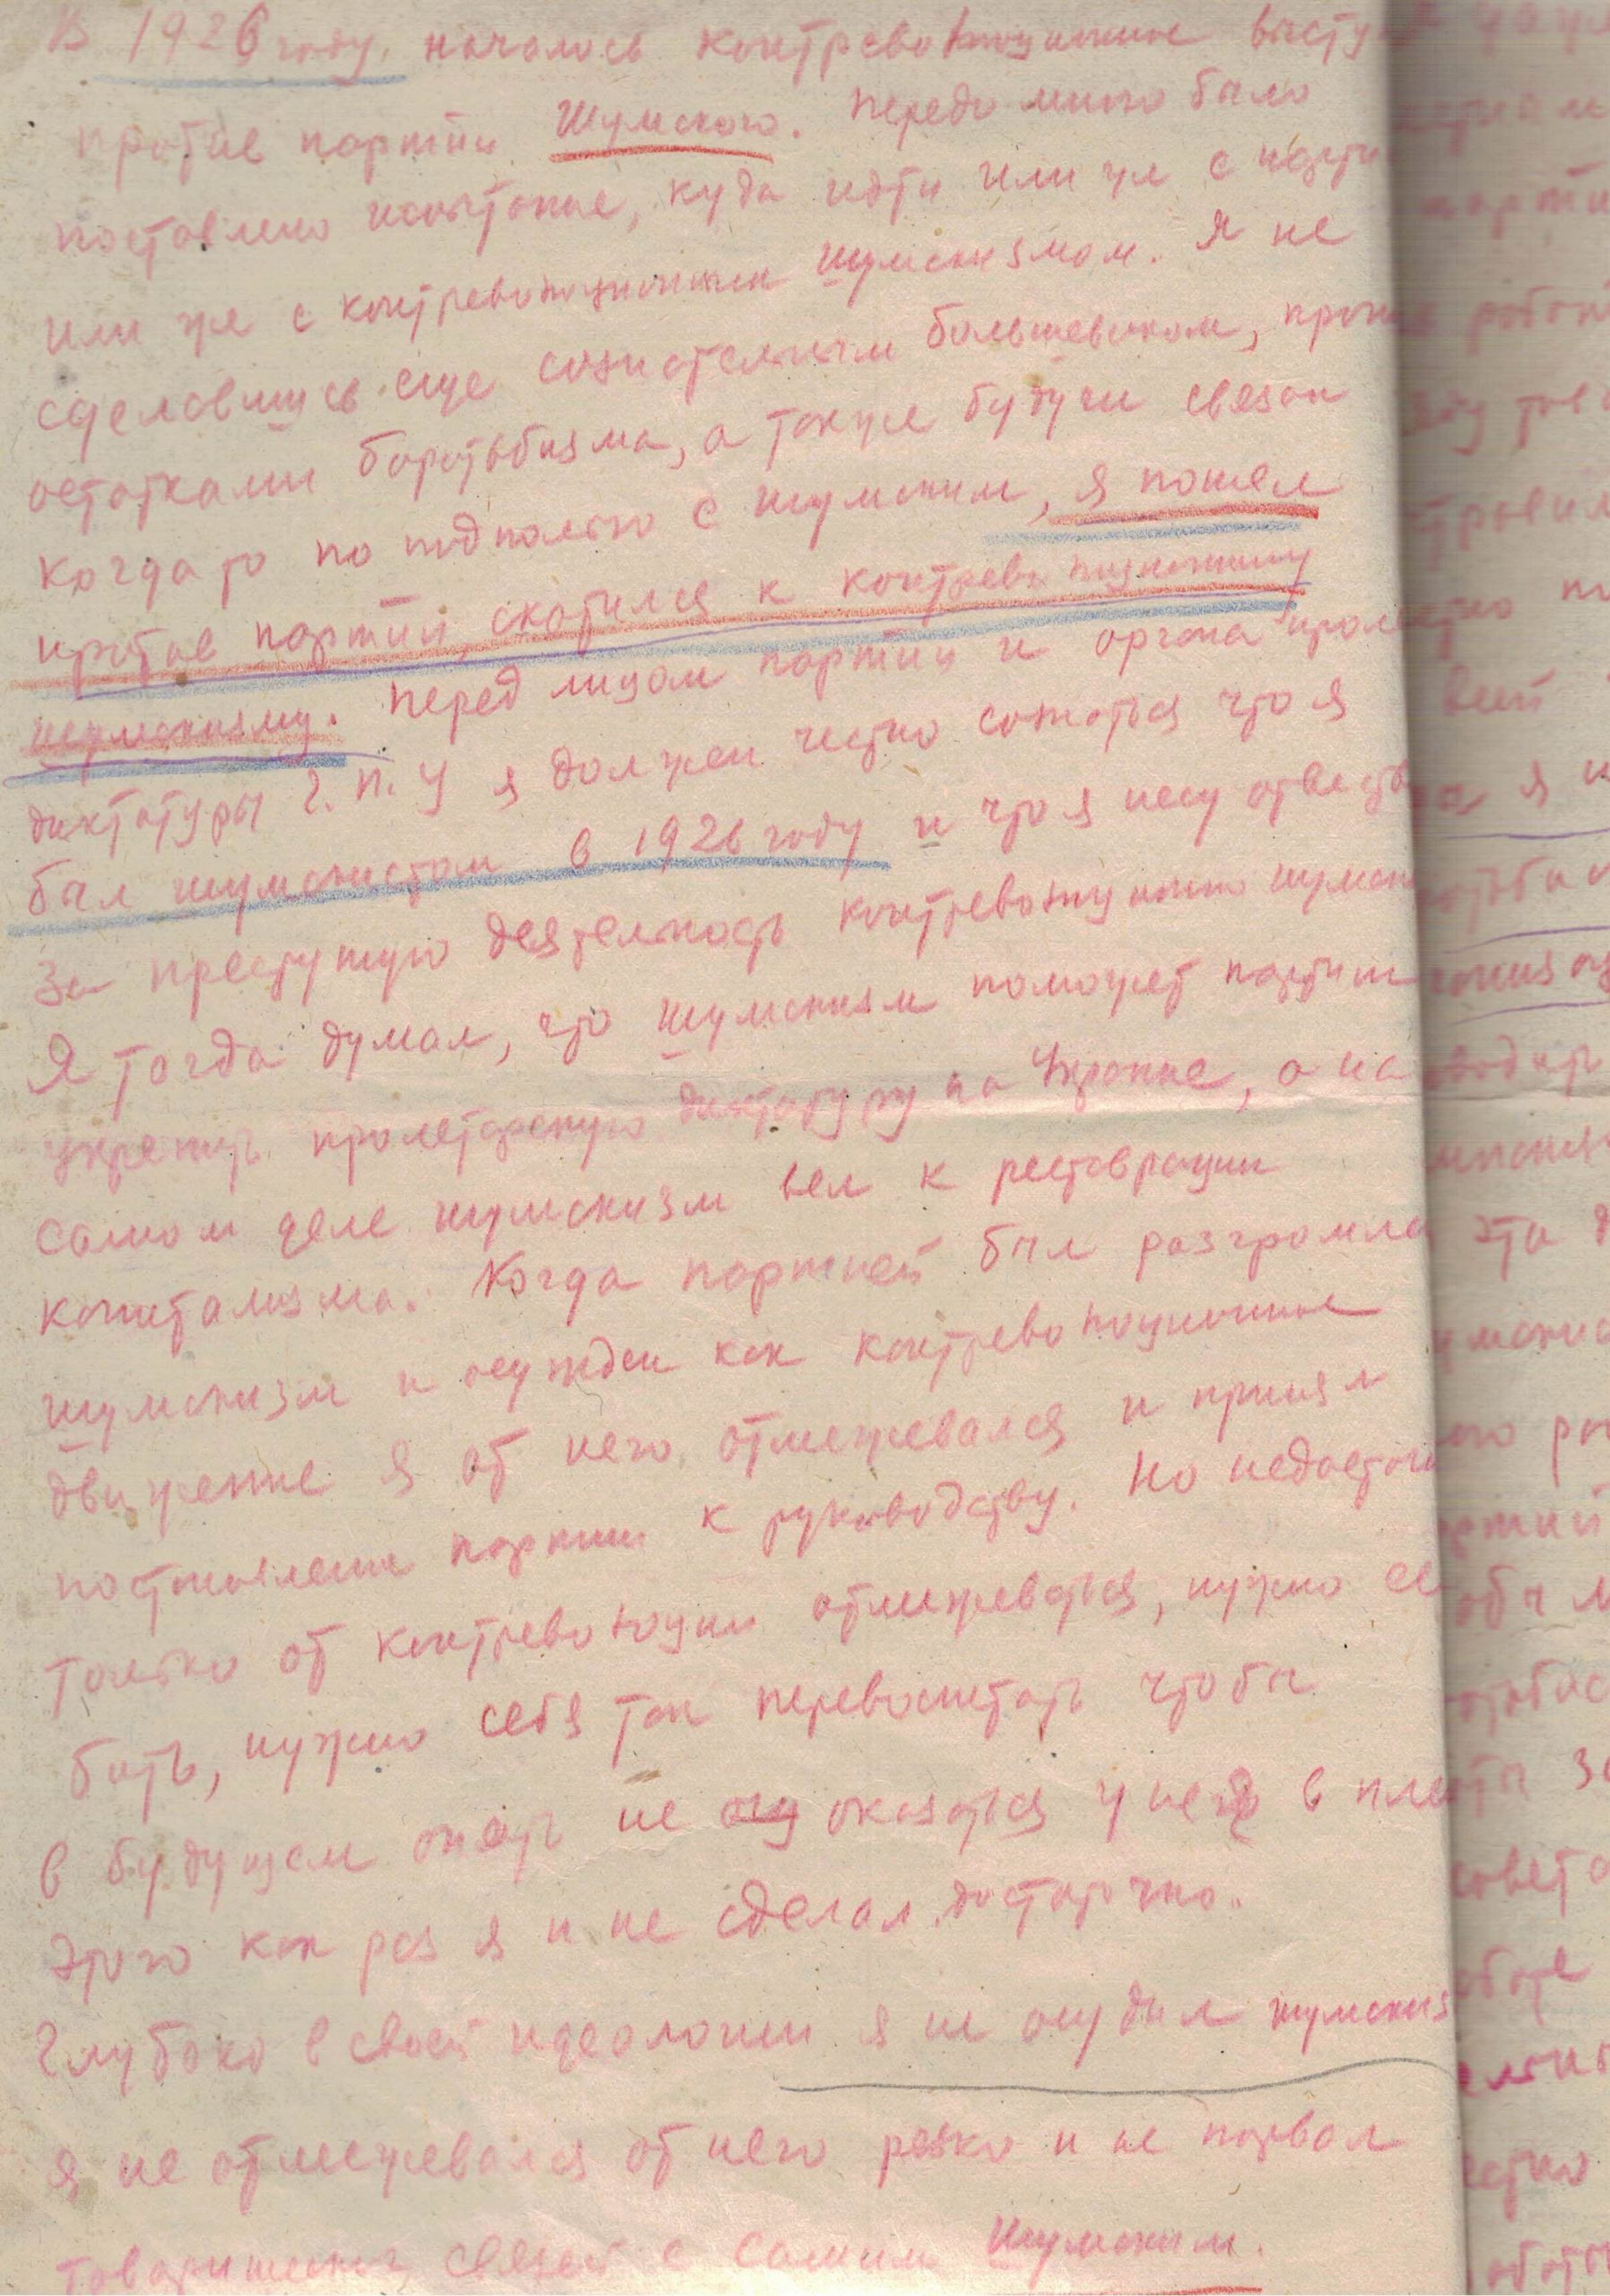 В 1926 году, началось контреволюционное высту
против партии Шумского. Передо мною было
поставлено испытание, куда идти или же с парти
или же с контреволюционным шумскизмом. Я не
сделавшись еще сознательным большевиком,
остатками боротьбизма, а также будучи связан
когда то по подполью с Шумским, я пошел
против партии, скатился к контреволюционному
шумскизму. Перед лицом партии и органа прол
диктатуры Г.П.У я должен честно сознаться что я
был шумскистом в 1926 году и что я несу ответств
за преступную деятельность контреволюционно шумск
Я тогда думал, что шумскизм поможет партии
укрепить пролетарскую диктатуру на Украине, а на
самом деле шумскизм вел к реставрации
капитализма. Когда партией был разгромле
шумскизм и осужден как контреволюционное
движение я от него отмежевался и принял
постановление партии к руководству. Но недостато
только от контреволюции отмежеваться, нужно ее
бить, нужно себя так перевоспитать чтобы
в будущем опять не оказаться у нея в пле
Этого как раз я и не сделал достаточно.
Глубоко в своей идеологии я не осудил шумскиз
я не отмежевался от него резко и не порвал
товарищеских связей с самим Шумским.